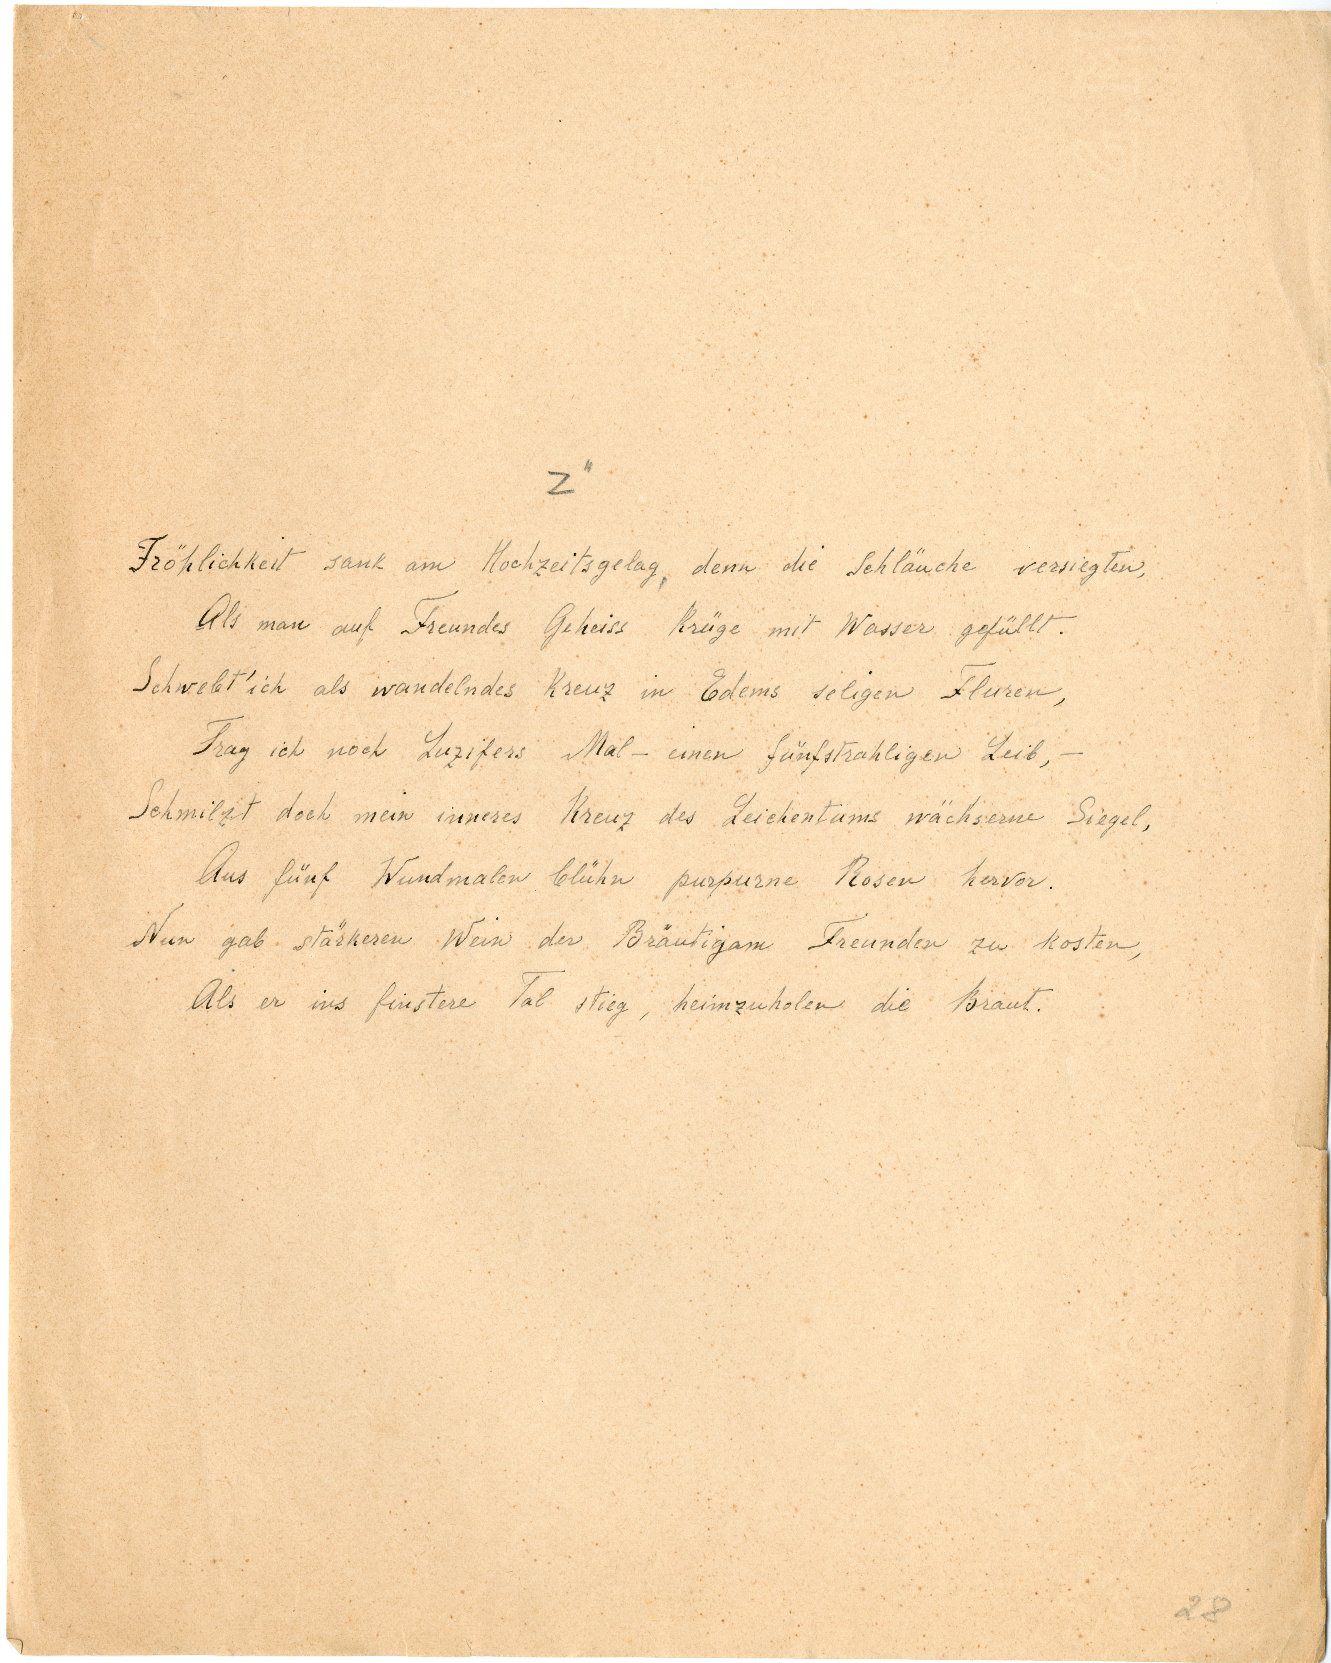 Z"
Fröhlichkeit sank am Hochzeitsgelag, denn die Schläuche versiegten,
Als man auf Freundes Geheiss Krüge mit Wasser gefüllt.
Schwebt' ich als wandelndes Kreuz in Edems seligen Fluren,
Trag ich noch Luzifers Mal – einen fünfstrahligen Leib, –
Schmilzt doch mein inneres Kreuz des Leichentums wächserne Siegel,
Aus fünf Wundmalen blühn purpurne Rosen hervor.
Nun gab stärkeren Wein der Bräutigam Freunden zu kosten,
Als er ins finstere Tal stieg, heimzuholen die Braut.
28